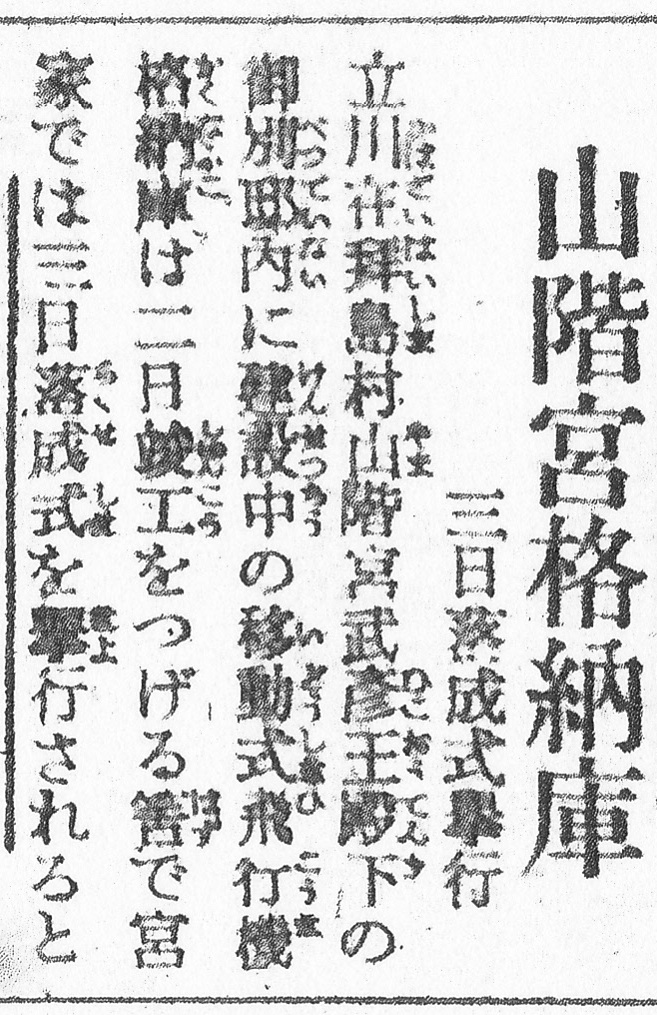 山階宮格納庫
三日落成式擧行
立川在拜島村山階宮武彦王殿下の
御別邸内に建設中の移動式飛行機
格納庫は二日竣工をつげる筈で宮
家では三日落成式を擧行されろと